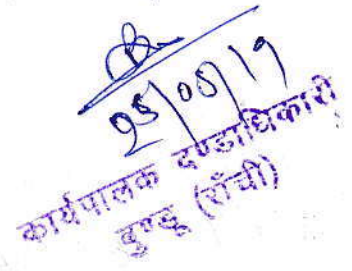 25/05/19
कार्यपालक दण्डाधिकारी
बुण्डू (राँची)